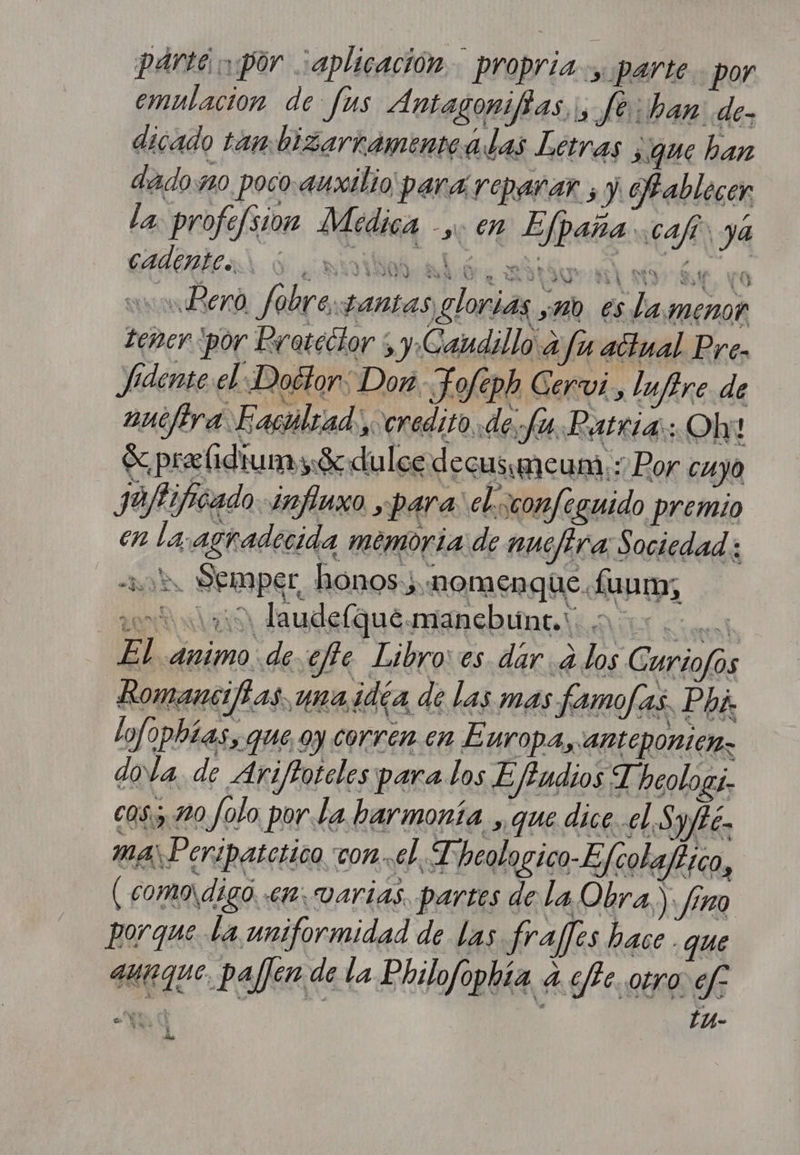 parte por aplicacion propria, parte por
emulacion de ſus Antagoniſtas, ſe han de-
dicado tan bizarramente à las Letras, que han
dado no poco auxilio para reparar, y eſtablecer
la profeſsion Medica, en Eſpaña caſi yà
cadente.
Pero ſobre tantas glorias, no es la menor
tener por Protector, y Caudillo à ſu actual Pre-
ſidente el Doctor Don Joſeph Cervi, luſtre de
nueſtra Facultad, credito de ſu Patria: Oh!
& præſidium, & dulce decus meum: Por cuyo
juſtificado influxo, para el conſeguido premio
en la agradecida memoria de nueſtra Sociedad:
Semper honos, nomenque ſuum,
laudeſque manebunt.
El animo de eſte Libro es dár à los Curioſos
Romanciſtas una idéa de las mas famoſas Phi-
loſophías, que oy corren en Europa, anteponien-
dola de Ariſtoteles para los Eſtudios Theologi-
cos; no ſolo por la harmonía, que dice el Syſté-
ma Peripatetico con el Theologico-Eſcolaſtico,
(como digo en varias partes de la Obra) ſino
porque la uniformidad de las fraſſes hace que
aunque paſſen de la Philoſophía à eſte otro eſ-
tu-